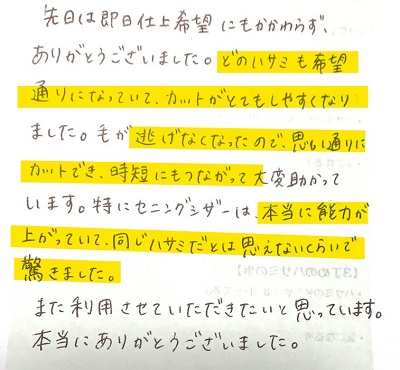 先日は即日仕上希望にもかかわらず、
ありがとうございました。どのハサミも希望
通りになっていて、カットがとてもしやすくなり
ました。毛が逃げなくなったので、思い通りに
カットでき、時短にもつながって大変助かって
います。特にセニングシザーは、本当に能力が
上がっていて、同じハサミだとは思えないくらいで
驚きました。
また利用させていただきたいと思っています。
本当にありがとうございました。